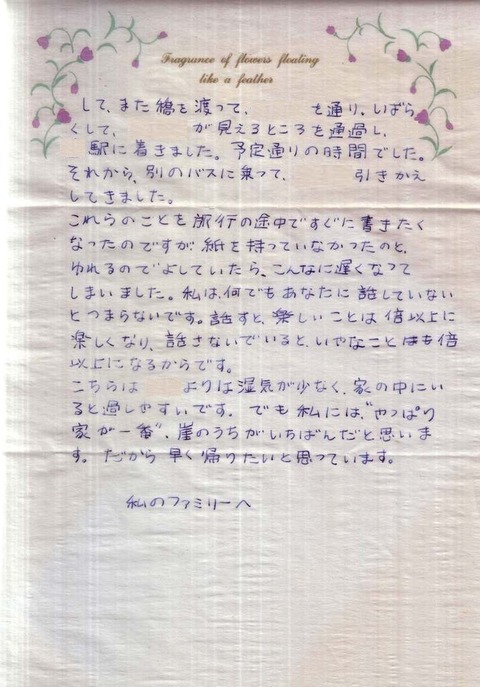 Fragrance of flowers floating
like a feather
して、また橋を渡って、 を通り、しばら
くして、 が見えるところを通過し、
駅に着きました。予定通りの時間でした。
それから、別のバスに乗って、 引きかえ
してきました。
これらのことを旅行の途中ですぐに書きたく
なったのですが紙を持っていなかったのと、
ゆれるのでよしていたら、こんなに遅くなって
しまいました。私は、何でもあなたに話していない
とつまらないです。話すと、楽しいことは倍以上に
楽しくなり、話さないでいると、いやなことはも倍
以上になるからです。
こちらは よりは湿気が少なく、家の中にい
ると過しやすいです。でも私には、“やっぱり
家が一番”、崖のうちがいちばんだと思いま
す。だから早く帰りたいと思っています。
私のファミリーへ